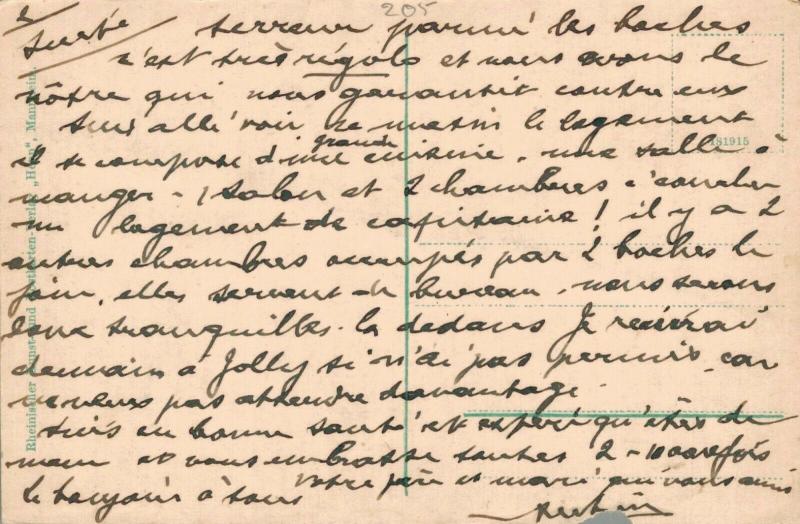 205
2
suite
terreur parmi les boches
c'est très rigolo et nous avons le
nôtre qui nous garantit contre eux
suis allé voir ce matin le logement
il se compose d'une grande cuisine, une salle à
manger - 1 salon et 2 chambres à coucher
un logement de capitaine ! il y a 2
autres chambres occupés par 2 boches le
jour, elles servent de bureau, nous serons
donc tranquilles la dedans Je
demain à Jolly si n'ai pas permis, car
ne veux pas attendre davantage.
suis en bonne santé et espère qu'êtes de
mem et vous embrasse toutes 2 - 1000 fois
le bonjour à tous
votre père et mari qui vous aime
181915
Rheinischer Kunst- und
"Mannheim